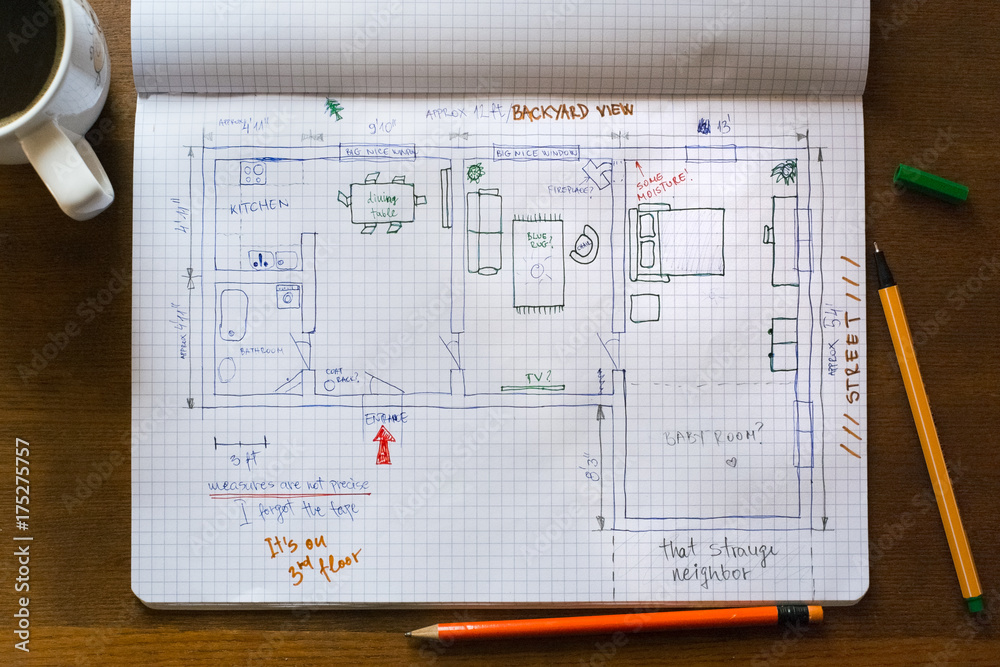 APPROX 12 ft/BACKYARD VIEW
APPROX 4'11"
9'10"
13'
BIG NICE WINDOW
BIG NICE WINDOW
KITCHEN
dining
table
FIREPLACE?
SOME
MOISTURE!
BLUE
RUG?
CHAIR
4'11"
APPROX 4'11"
BATHROOM
COAT
RACK?
TV?
ENTRANCE
BABY ROOM?
8'3"
APPROX 54'
/// STREET ///
3 ft
measures are not precise
I forgot the tape
It's on
3rd floor
that strange
neighbor
Adobe Stock | #175275757
Adobe Stock